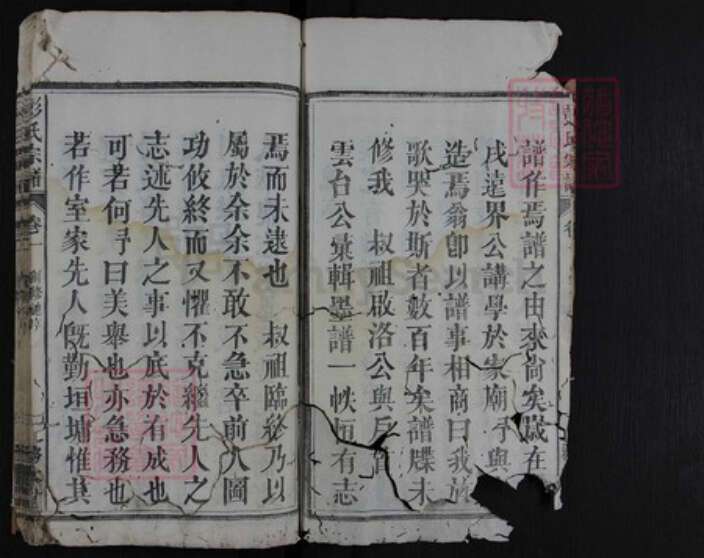 譜作焉譜之由來尚矣歲在
戌遠界公講學於家廟予與
造焉翁卽以譜事相商曰我於
歌哭於斯者數百年矣譜牒未
修我　叔祖啟洛公與戶
雲台公彙輯墨譜一帙恒有志
焉而未逮也　叔祖臨終乃以
屬於余余不敢不急卒前人圖
功攸終而又懼不克繼先人之
志述先人之事以底於有成也
可若何予曰美舉也亦急務也
若作室家先人既勤垣墉惟其
彭氏宗譜
卷一